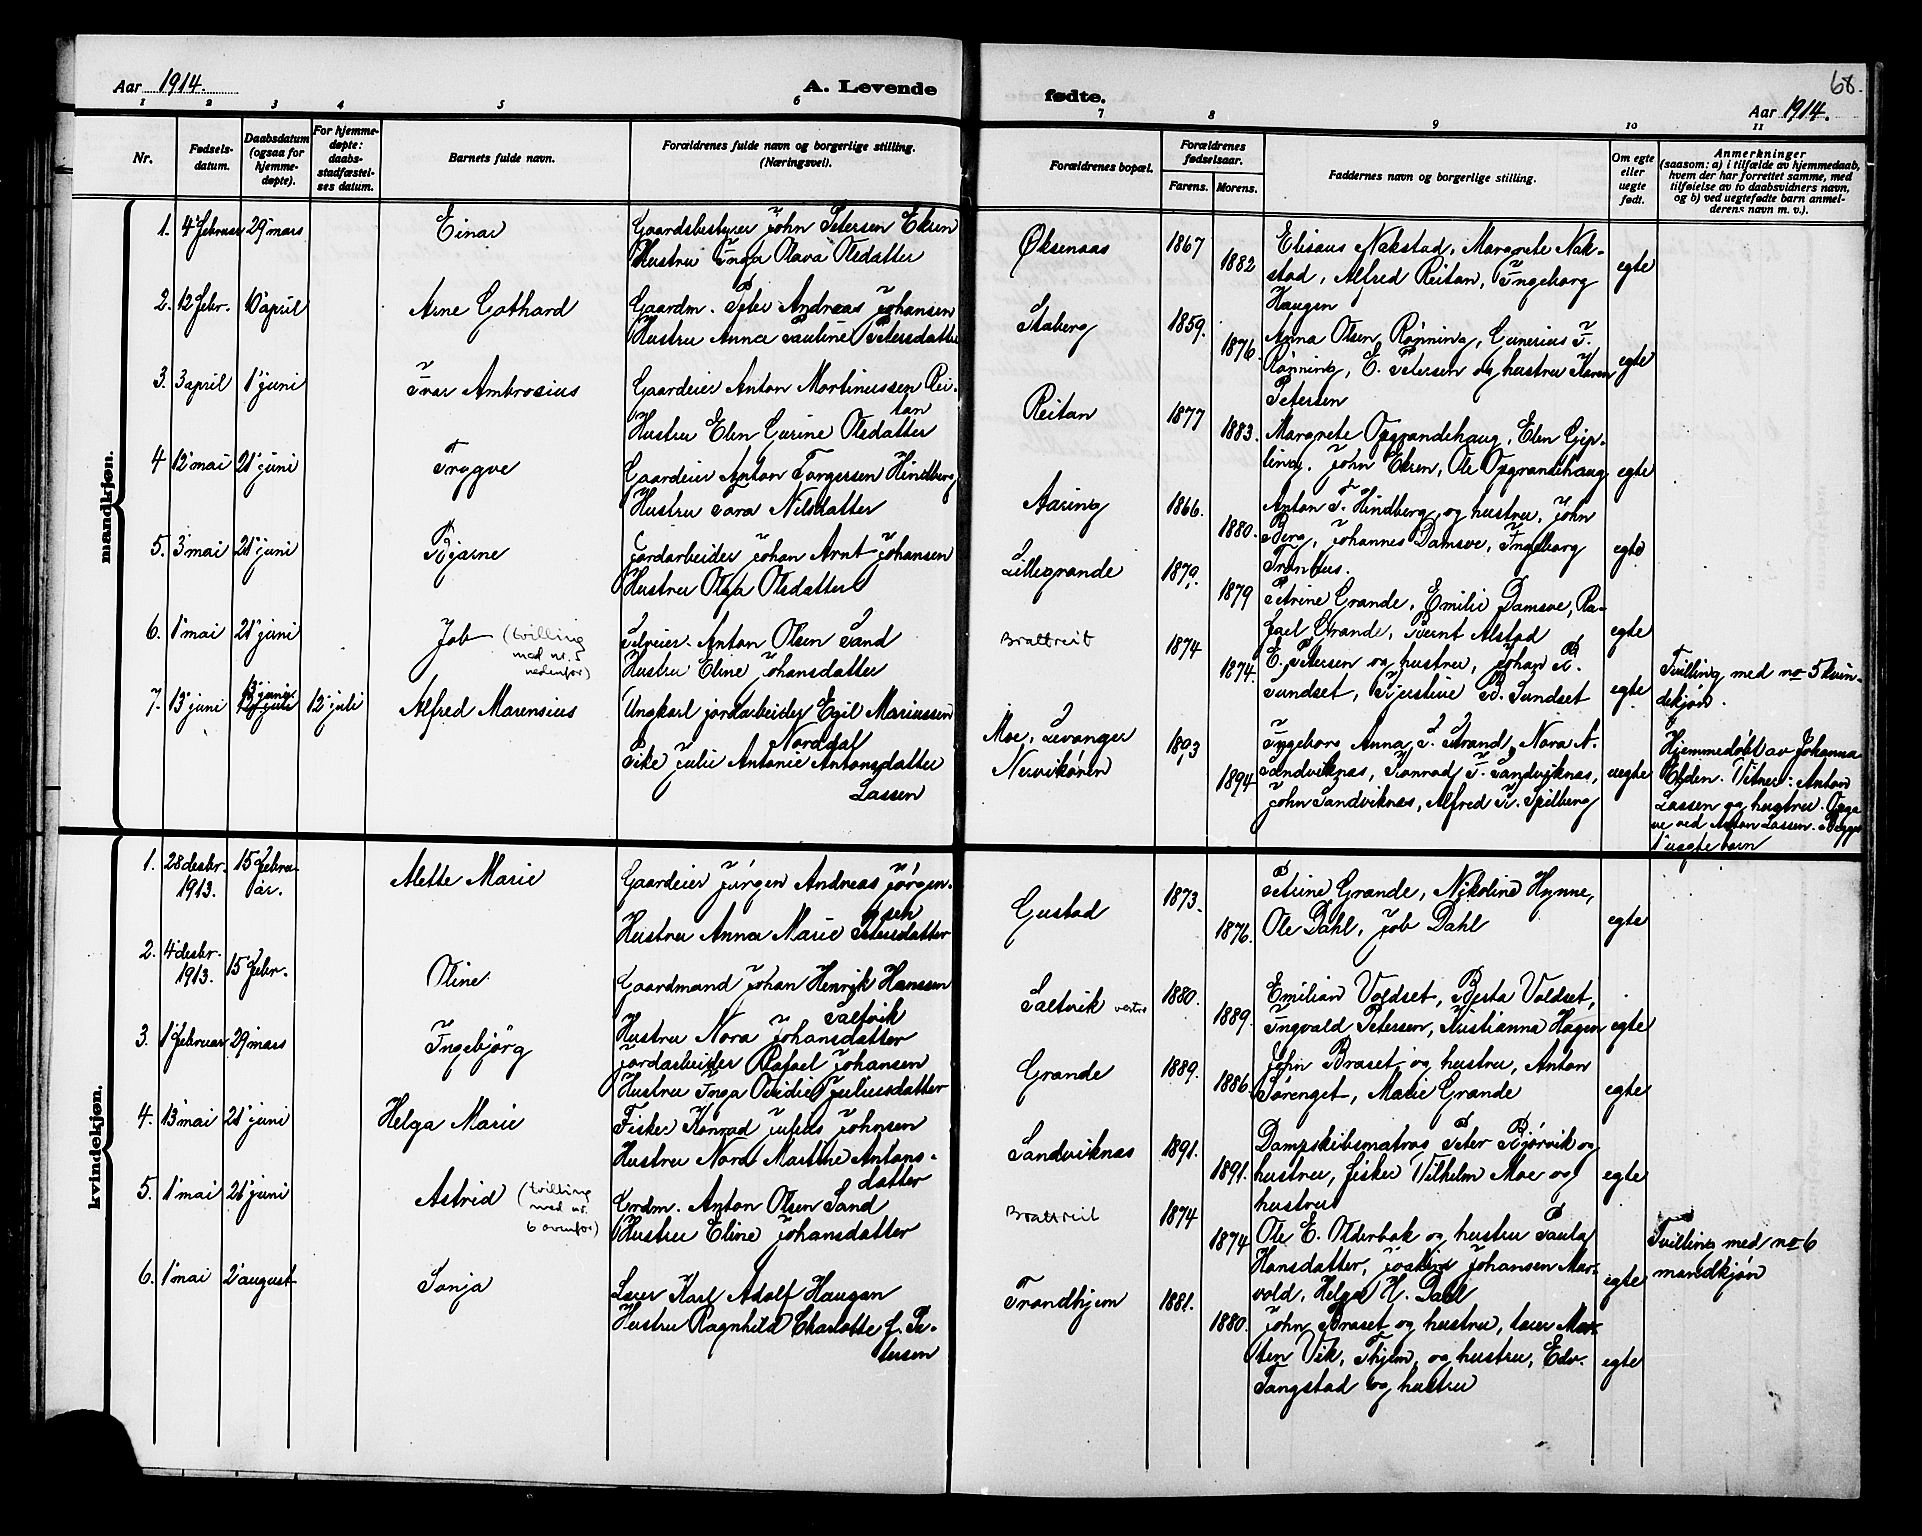 Aar 1914.
A. Levende
fødte.
68.
Aar 1914.
1 2 3 4 5 6 7 8 9 10 11
Nr.
Fødsels-
datum.
Daabsdatum
(ogsaa for
hjemme-
døpte).
For hjemme-
døpte:
daabs-
stadfæstel-
ses datum.
Barnets fulde navn.
Forældrenes fulde navn og borgerlige stilling.
(Næringsvei).
Forældrenes bopæl.
Forældrenes
fødselsaar.
Farens. Morens.
Faddernes navn og borgerlige stilling.
Om egte
eller
uegte
født.
Anmerkninger
(saasom: a) i tilfælde av hjemmedaab,
hvem der har forrettet samme, med
tilføielse av to daabsvidners navn,
og b) ved uegtefødte barn anmel-
derens navn m. v.).
mandkjøn.
1. 4' februar 29' mars
Einar
Gaardsbestyrer John Petersen Eksen
Hustru Inga Olava Olsdatter
Øksenaas
1867
1882
Elisæus Nakstad, Margrete Nak-
stad, Alfred Reitan, Ingeborg
Haugen
egte
2. 12' febr. 10' april
Arne Gothard
Gaardm. Peter Andreas Johansen
Hustru Anna Pauline Petersdatter
Staberg
1859.
1876.
Anna Olsen Rønning, Gunerius I.
Rønning, E. Petersen og hustru Karen
Petersen
egte
3. 3' april 1' juni
Ivar Ambrosius
Gaardeier Anton Martinussen Rei-
tan
Hustru Elen Gurine Olsdatter
Reitan
1877
1883.
Margrete Opgrandehaug, Elen Gip-
ling, John Eksen, Ole Opgrandehaug
egte
4 12' mai 21' juni
Trygve
Gaardeier Anton Torgersen Hindberg
Hustru Sara Nilsdatter
Aaring
1866.
1880.
Anton T. Hindberg og hustru, John
Berg, Johannes Damsve, Ingeborg
Tronhus.
egte
5. 3' mai 21' juni
Bjarne
Jordarbeider Johan Arnt Johansen
Hustru Olga Olsdatter
Lillegrande
1879.
1879
Petrine Grande, Emilie Damsve, Ra-
fael Grande, Bernt Alstad
egte
6. 1' mai 21' juni
Job (tvilling
med nr. 5
nedenfor)
Selveier Anton Olsen Sand
Hustru Eline Johansdatter
Brattreit
1874
1874.
E. Petersen og hustru, Johan B.
Sundset, Kjustine B. Sundset
egte
Tvilling med no 5 kvin-
dekjøn.
7. 13' juni 12' juli 12' juli
Alfred Marensius
Ungkarl jordarbeider Egil Mariussen
Norddal
Pike Julie Antonie Antonsdatter
Lassen
Moe, Levanger
Nesvikøren
1893
1894
Ingeborg Anna S. Strand, Nora N.
Sandviknæs, Konrad J. Sandviknæs,
John Sandviknæs, Alfred K. Spilberg
uegte
Hjemmedøbt av Johanna
Elden. Vitner: Anton
Lassen og hustru. Opga-
ve ved Anton Lassen. Begges
1' uegte barn
kvindekjøn.
1. 28' desbr.
1913.
15' febru-
ar.
Alette Marie
Gaardeier Jørgen Andreas Jørgen-
sen
Hustru Anna Marie Petersdatter
Gustad
1873.
1876.
Petrine Grande, Nikoline Hynne,
Ole Dahl, Job Dahl
egte
2. 4' desbr.
1913.
15' febr.
Oline
Gaardmand Johan Henrik Hanssen
Saltvik
Hustru Nora Johansdatter
Saltvik vestre
1880.
1889.
Emilian Voldset, Berta Voldset,
Ingvald Petersen, Kristianna Hagen
egte
3. 1' februar 29' mars
Ingebjørg
Jordarbeider Rafael Johansen
Hustru Inga Ovidie Juliusdatter
Grande
1889.
1886.
John Braset og hustru, Anton
Sørenget, Marie Grande
egte
4. 13' mai 21' juni
Helga Marie
Fisker Konrad Julius Johnsen
Hustru Nora Martine Antons-
datter
Sandviknæs
1891.
1891.
Dampskibsmatros Peter Bjørvik og
hustru, fisker Vilhelm Moe og
hustru
egte
5. 1' mai 21' juni
Astrid (tvilling
med nr.
6 ovenfor)
Grdm. Anton Olsen Sand
Hustru Eline Johansdatter
Brattreit
1874
1874
Ole E. Olderbak og hustru Paula
Hansdatter, Joakim Johansen Mar-
vold, Helga H. Dahl
egte
Tvilling med no 6
mandkjøn
6. 1' mai 2' august
Sonja
Lærer Karl Adolf Haugan
Hustru Ragnhild Charlotte f. Pe-
tersen
Trondhjem
1881.
1880.
John Braset og hustru, lærer Mor-
ten Vik, Thjem, og hustru, Edv.
Tangstad og hustru
egte